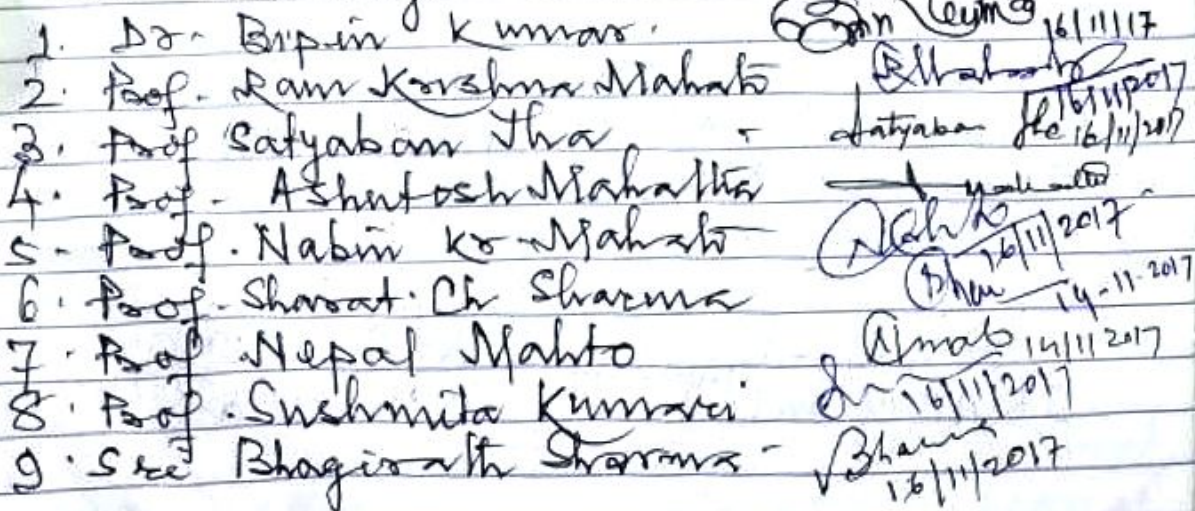 1. Dr. Bipin Kumar. 16/11/17
2. Prof. Ram Krishna Mahato 16/11/2017
3. Prof Satyaban Jha Satyaban Jha 16/11/2017
4. Prof. Ashutosh Mahatha
5. Prof. Nabin Kr. Mahato 16/11/2017
6. Prof. Sharat. Ch Sharma 14-11-2017
7. Prof Nepal Mahto 14/11/2017
8. Prof. Sushmita Kumari 16/11/2017
9. Sri Bhagirath Sharma 16/11/2017